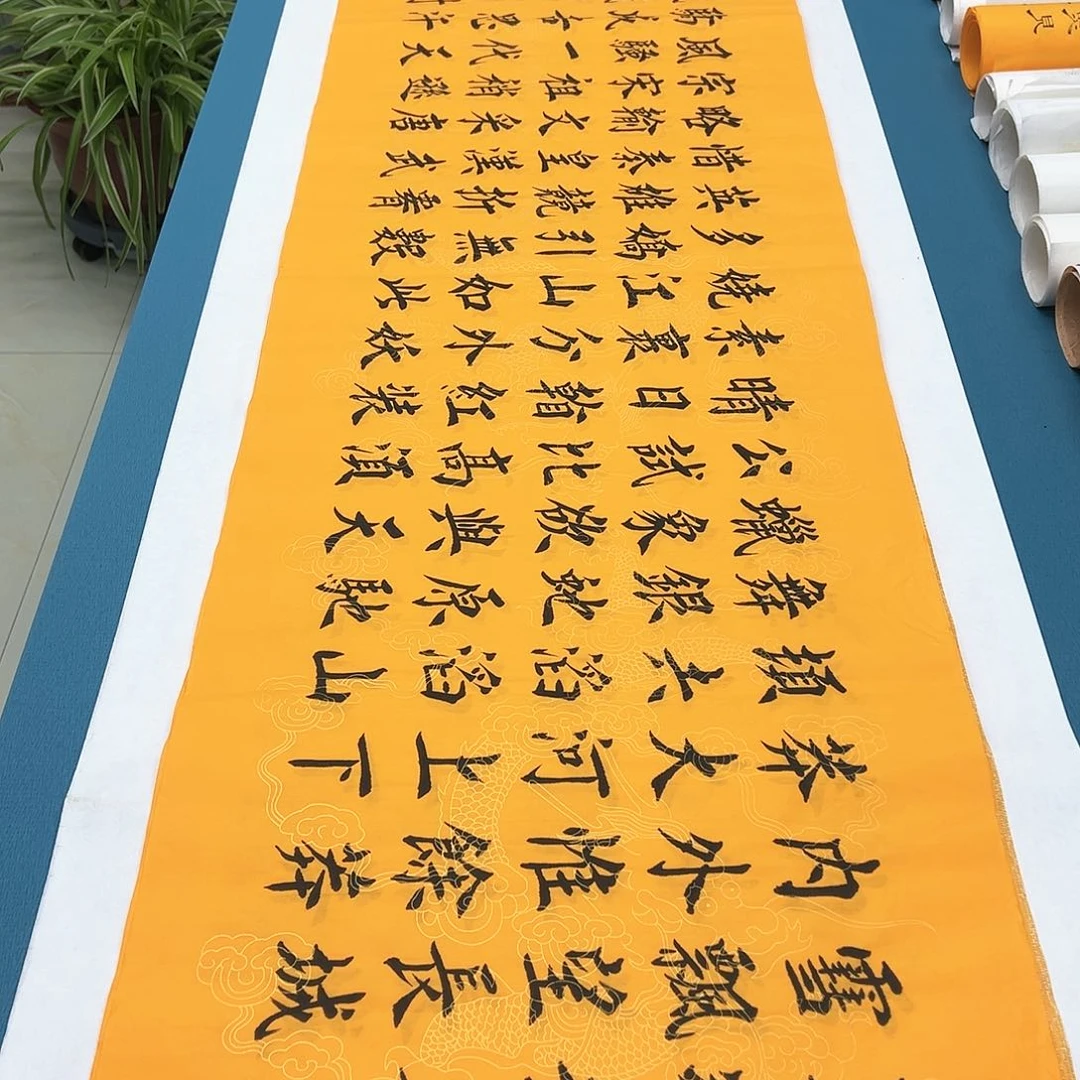 雪飄望長城
內外惟餘莽
莽大河上下
頓失滔滔山
舞銀蛇原馳
蠟象欲與天
公試比高須
晴日看紅裝
素裹分外妖
嬈江山如此
多嬌引無數
英雄競折腰
惜秦皇漢武
略輸文采唐
宗宋祖稍遜
風騷一代天
驕成吉思汗